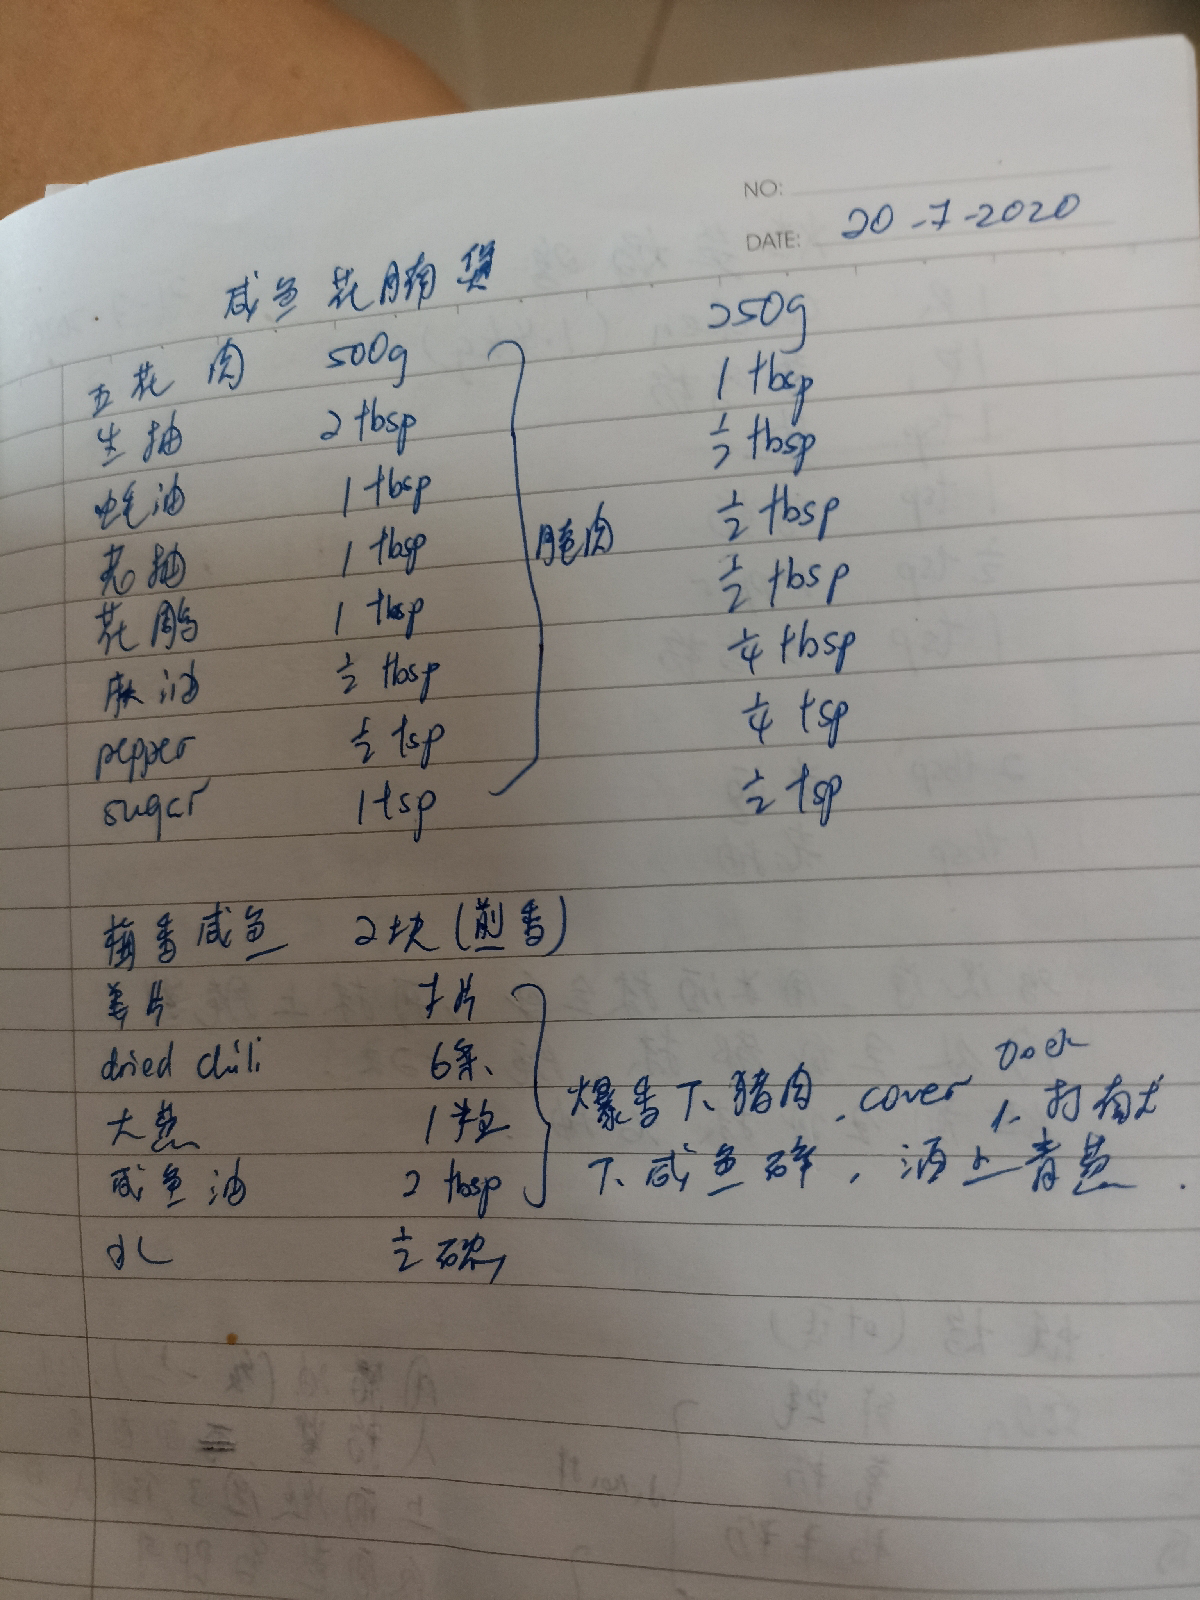 NO:
DATE: 20-7-2020
咸鱼花腩煲
五花肉 500g 250g
生抽 2 tbsp 1 tbsp
蚝油 1 tbsp ½ tbsp
老抽 1 tbsp ½ tbsp
腌肉
花雕 1 tbsp ½ tbsp
麻油 ½ tbsp ¼ tbsp
pepper ½ tsp ¼ tsp
sugar 1 tsp ½ tsp
梅香咸鱼 2块 (煎香)
姜片 7片
dried chili 6条
大葱 1粒
咸鱼油 2 tbsp
水 ½ 碗
爆香下猪肉, cover
下咸鱼碎, 洒上青葱.